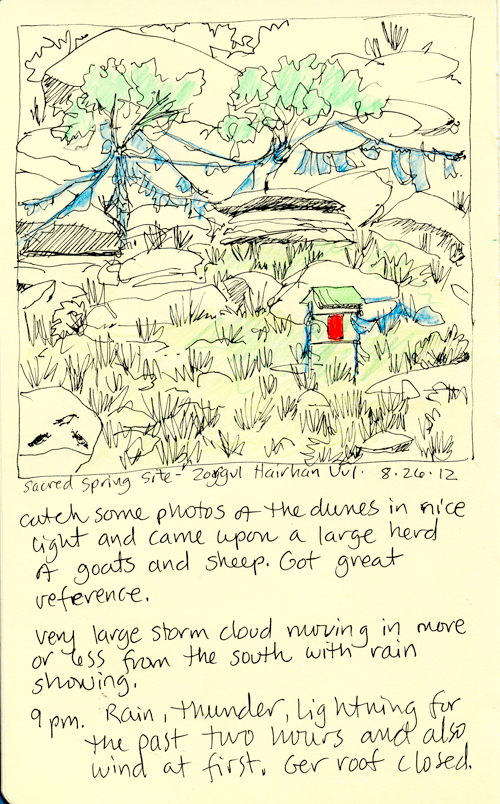 Sacred Spring Site - Zorgul Hairhan Uul. 8.26.12
catch some photos of the dunes in nice
light and came upon a large herd
of goats and sheep. Got great
reference.
Very large storm cloud moving in more
or less from the south with rain
showing.
9 pm. Rain, thunder, lightning for
the past two hours and also
wind at first. Ger roof closed.